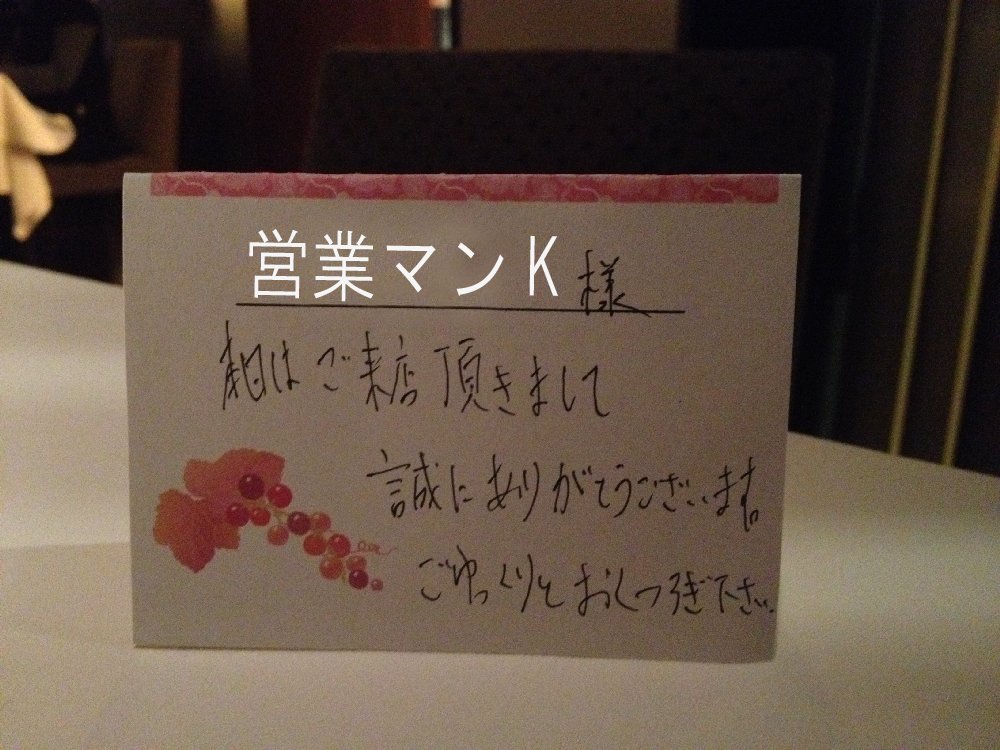 営業マンK 様
本日はご来店頂きまして
誠にありがとうございます。
ごゆっくりとおくつろぎ下さい。